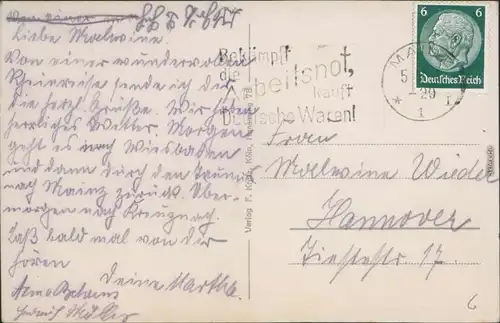 Liebe Malwine.
Von einer wundervollen
Rheinreise sende ich dir
die herzl. Grüße. Wir haben
herrliches Wetter. Morgen
geht es nach Wiesbaden
und dann durch den Taunus
nach Mainz zurück. Über-
morgen nach Kreuznach.
Laß bald mal von dir
hören
Deine Martha.
Bekämpft
die Arbeitsnot,
kauft
Deutsche Waren!
MA
5
29
1
6 6
Deutsches Reich
Verlag Köln
Frau
Malwine Wiede
Hannover
17.
6